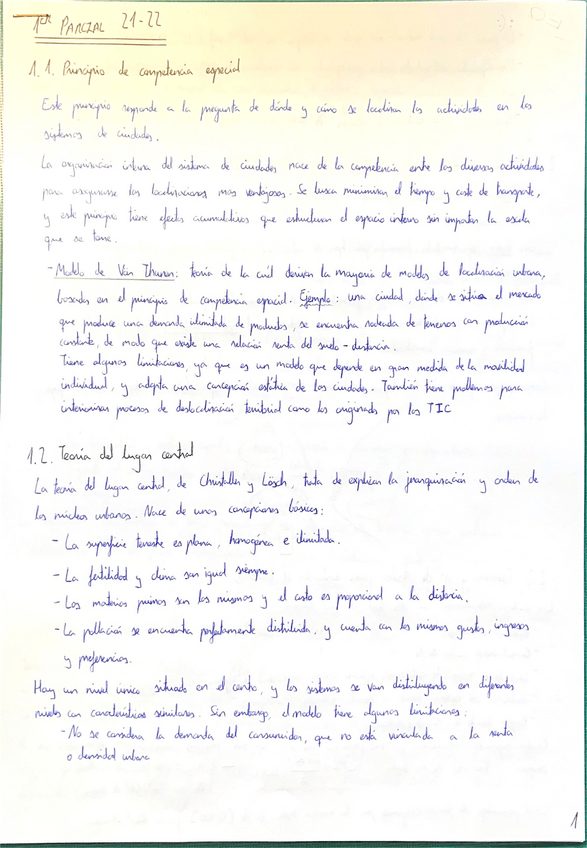 1er PARCIAL 21-22
1.1. Principio de competencia espacial
Este principio responde a la pregunta de dónde y cómo se localizan las actividades en los
sistemas de ciudades.
La organización interna del sistema de ciudades nace de la competencia entre las diversas actividades
para asegurarse las localizaciones más ventajosas. Se busca minimizar el tiempo y coste de transporte,
y este principio tiene efectos acumulativos que estructuran el espacio interno sin importar la escala
que se tome.
- Modelo de Von Thunen: teoría de la cuál derivan la mayoría de modelos de localización urbana,
basados en el principio de competencia espacial. Ejemplo: una ciudad, donde se sitúa el mercado
que produce una demanda ilimitada de productos, se encuentra rodeada de terrenos con producción
constante, de modo que existe una relación renta del suelo-distancia.
Tiene algunas limitaciones, ya que es un modelo que depende en gran medida de la movilidad
individual, y adopta una concepción estática de las ciudades. También tiene problemas para
interiorizar procesos de deslocalización territorial como los originados por las TIC
1.2. Teoría del lugar central
La teoría del lugar central, de Christaller y Lösch, trata de explicar la jerarquización y orden de
los núcleos urbanos. Nace de unas concepciones básicas:
- La superficie terrestre es plana, homogénea e ilimitada.
- La fertilidad y clima son igual siempre.
- Las materias primas son las mismas y el costo es proporcional a la distancia.
- La población se encuentra perfectamente distribuida, y cuenta con los mismos gustos, ingresos
y preferencias.
Hay un nivel único situado en el centro, y los sistemas se van distribuyendo en diferentes
niveles con características similares. Sin embargo, el modelo tiene algunas limitaciones:
- No se considera la demanda del consumidor, que no está vinculada a la renta
o densidad urbana
1